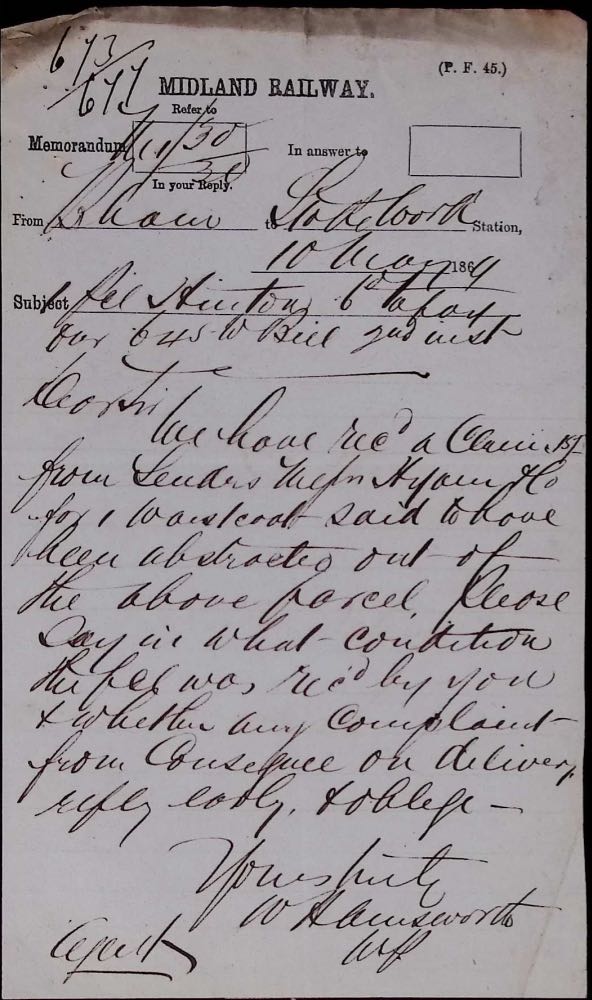 673/677
(P. F. 45.)
MIDLAND RAILWAY.
Refer to
Memorandum 30/30 In answer to
In your Reply.
From B.ham to Station,
10 May 1869
Subject pcl Hinton 6d to pay
our 645 W Bill 2nd inst
Dear Sir
We have rec'd a Claim 15/
from Senders Messrs Hyam & Co
for 1 Waistcoat said to have
been abstracted out of
the above parcel, Please
Say in what condition
the pcl was rec'd by you
& whether any Complaint
from Consignee on delivery,
reply early, & oblige —
Yours truly
W Hainsworth
Agent